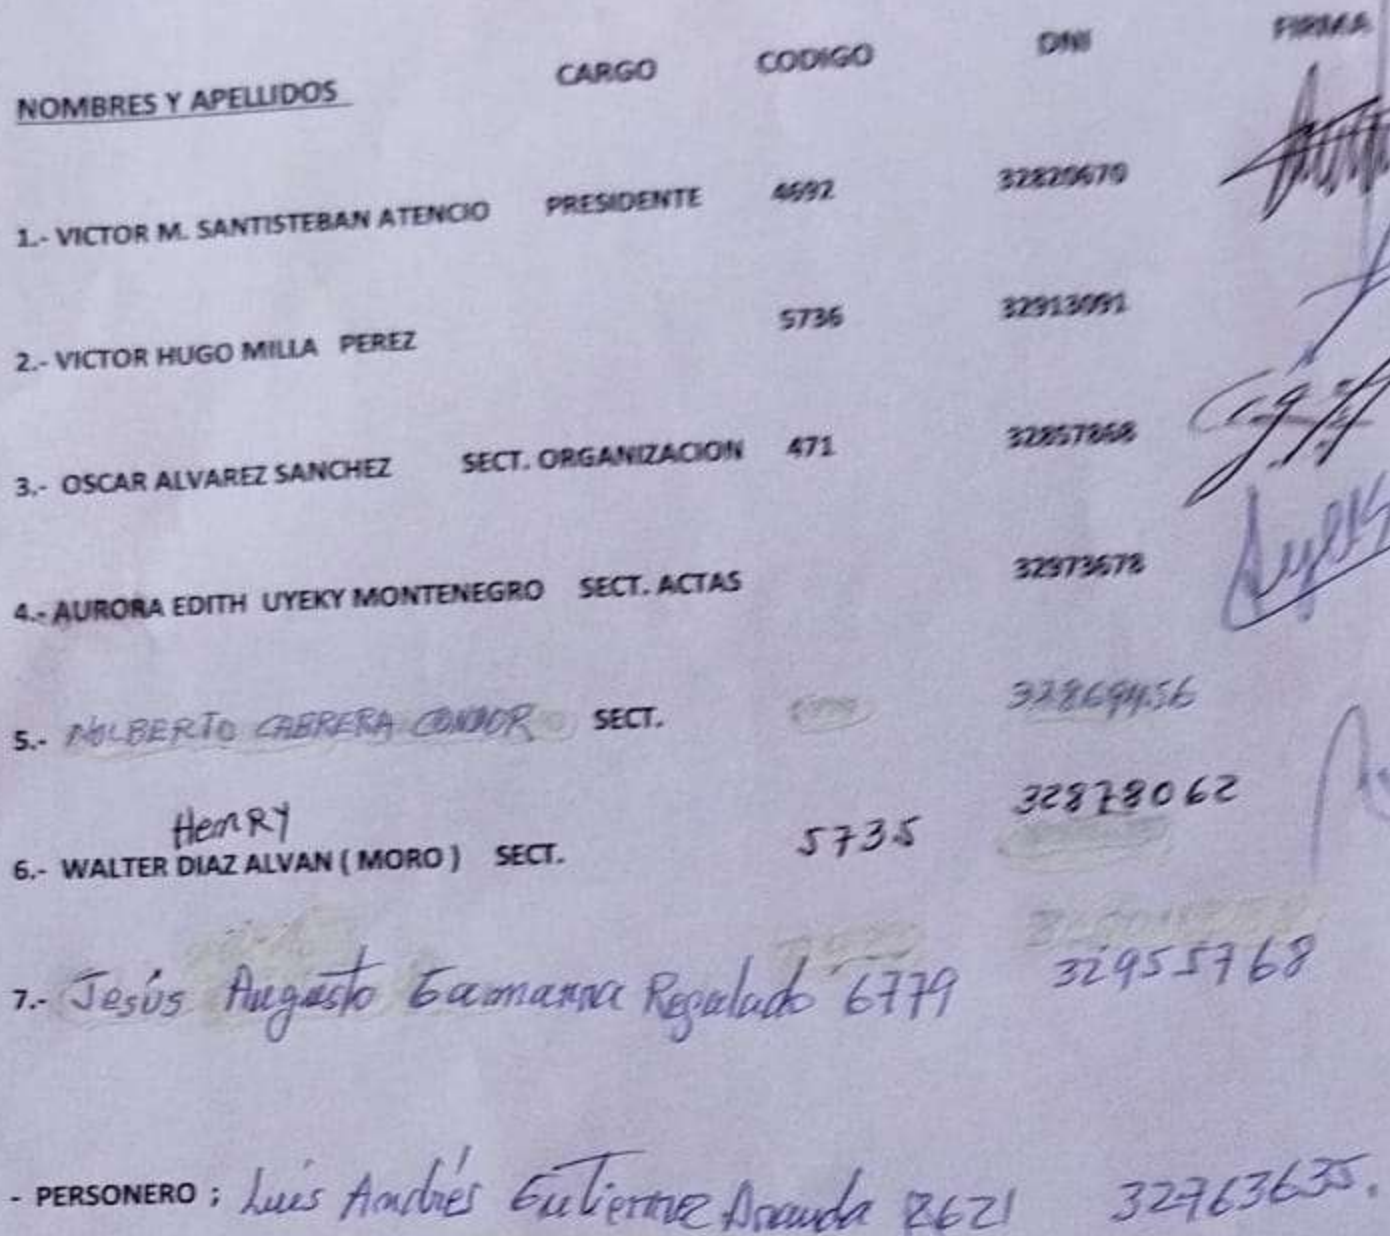 NOMBRES Y APELLIDOS CARGO CODIGO DNI FIRMA
1.- VICTOR M. SANTISTEBAN ATENCIO PRESIDENTE 4692 32820670
2.- VICTOR HUGO MILLA PEREZ 5736 32913091
3.- OSCAR ALVAREZ SANCHEZ SECT. ORGANIZACION 471 32857868
4.- AURORA EDITH UYEKY MONTENEGRO SECT. ACTAS 32973678
5.- NOLBERTO CABRERA CONDOR SECT. 32869456
Henry
6.- WALTER DIAZ ALVAN ( MORO ) SECT. 5735 32878062
7.- Jesús Augusto Gamarra Regalado 6779 32955768
- PERSONERO ; Luis Andrés Gutierrez Aranda 2621 32763635.